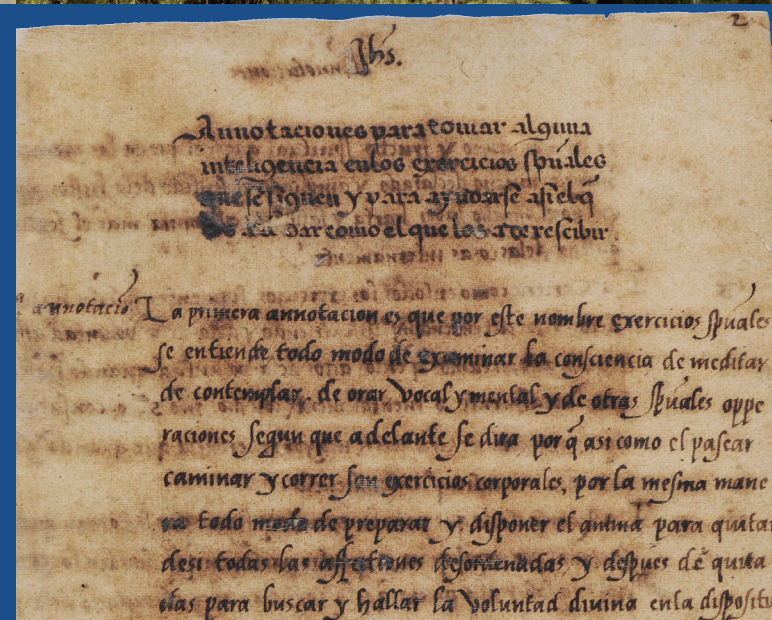 2
Jhs.
Annotaciones para tomar alguna
inteligencia enlos exercicios spũales
que se siguen y para ayudarse asi el q̃
los a de dar como el que los a de rescibir.
annotaciõ La primera annotacion es que por este nombre exercicios spũales
se entiende todo modo de examinar la consciencia de meditar
de contemplar. de orar vocal y mental y de otras spũales oppe
raciones segun que adelante se dira por q̃ asi como el pasear
caminar y correr son exercicios corporales, por la mesma mane
ra todo modo de preparar y disponer el anima para quitar
desi todas las affectiones desordenadas y despues de quita
das para buscar y hallar la voluntad divina enla disposit